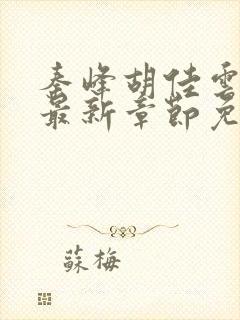 秦峰胡佳雲
最新章節免
蘇梅